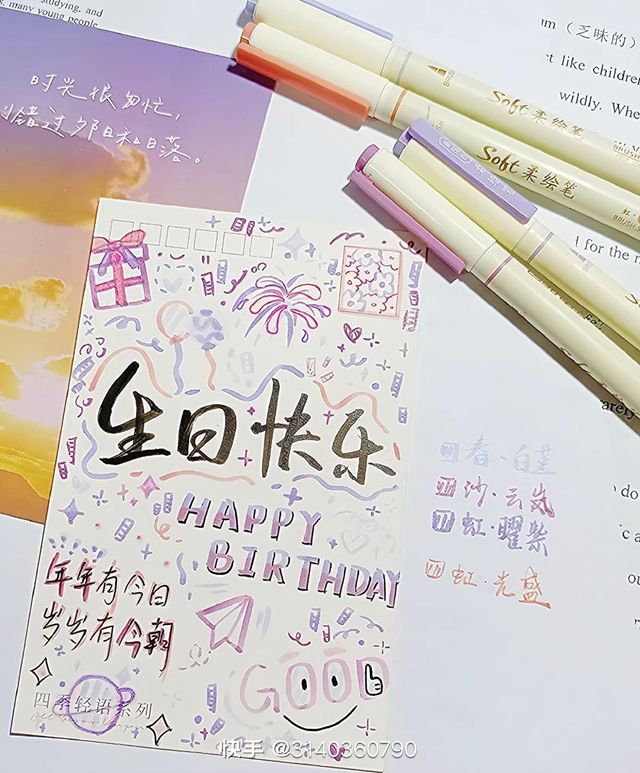 studying, and
many young people
时光很匆忙，
别错过夕阳和日落。
um（乏味的）
t like children
wildly. Whe
BRUSH
Soft 柔绘笔
Soft 柔绘笔
BRUSH
d for the
arely
do
生日快乐
HAPPY
BIRTHDAY
年年有今日
岁岁有今朝
GOOD
四季轻语系列
春·白堇
沙·云岚
虹·曜紫
虹·光盛
快手 @3140360790